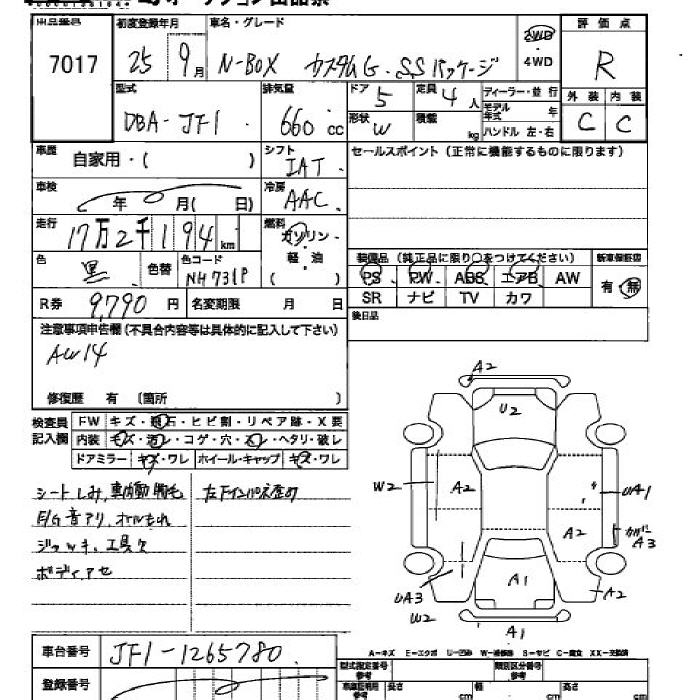 出品番号 初度登録年月 車名・グレード 2WD・4WD 評価点
7017 25 9月 N-BOX カスタムG.SSパッケージ R
型式 排気量 ドア 定員 ディーラー・並行 外装 内装
DBA-JF1 660cc 5 4人 モデル年式 年 C C
形状 W 積載 kg ハンドル 左・右
車歴 自家用・( ) シフト IAT. セールスポイント(正常に機能するものに限ります)
車検 年 月( 日) 冷房 AAC
走行 17万2千194km 燃料 ガソリン・軽・油 ( )
色 黒 色替 色コード NH731P
装備品(純正品に限り○をつけてください) 新車保証書
PS PW ABS エアB AW 有・無
SR ナビ TV カワ
R券 9,790円 名変期限 月 日 後日品
注意事項申告欄(不具合内容等は具体的に記入して下さい)
AW14
修復歴 有 (箇所 )
検査員記入欄 FW キズ・飛石・ヒビ割・リペア跡・X要
内装 キズ・汚レ・コゲ・穴・スレ・ヘタリ・破レ
ドアミラー キズ・ワレ ホイール・キャップ キズ・ワレ
シートしみ,車内動物毛 左下インパネ歪め
E/G音アリ,オイルもれ
ジャッキ,工具欠
ボディアセ
A2
U2
W2 A2 UA1
A2 カバーA3
A1
UA3 A2
W2
A1
A-キズ E-エクボ U-凹み W-補修跡 S-サビ C-腐食 XX-交換済
車台番号 JF1-1265780
登録番号
型式指定番号 参考 類別区分番号 参考
長さ cm 幅 cm 高さ cm